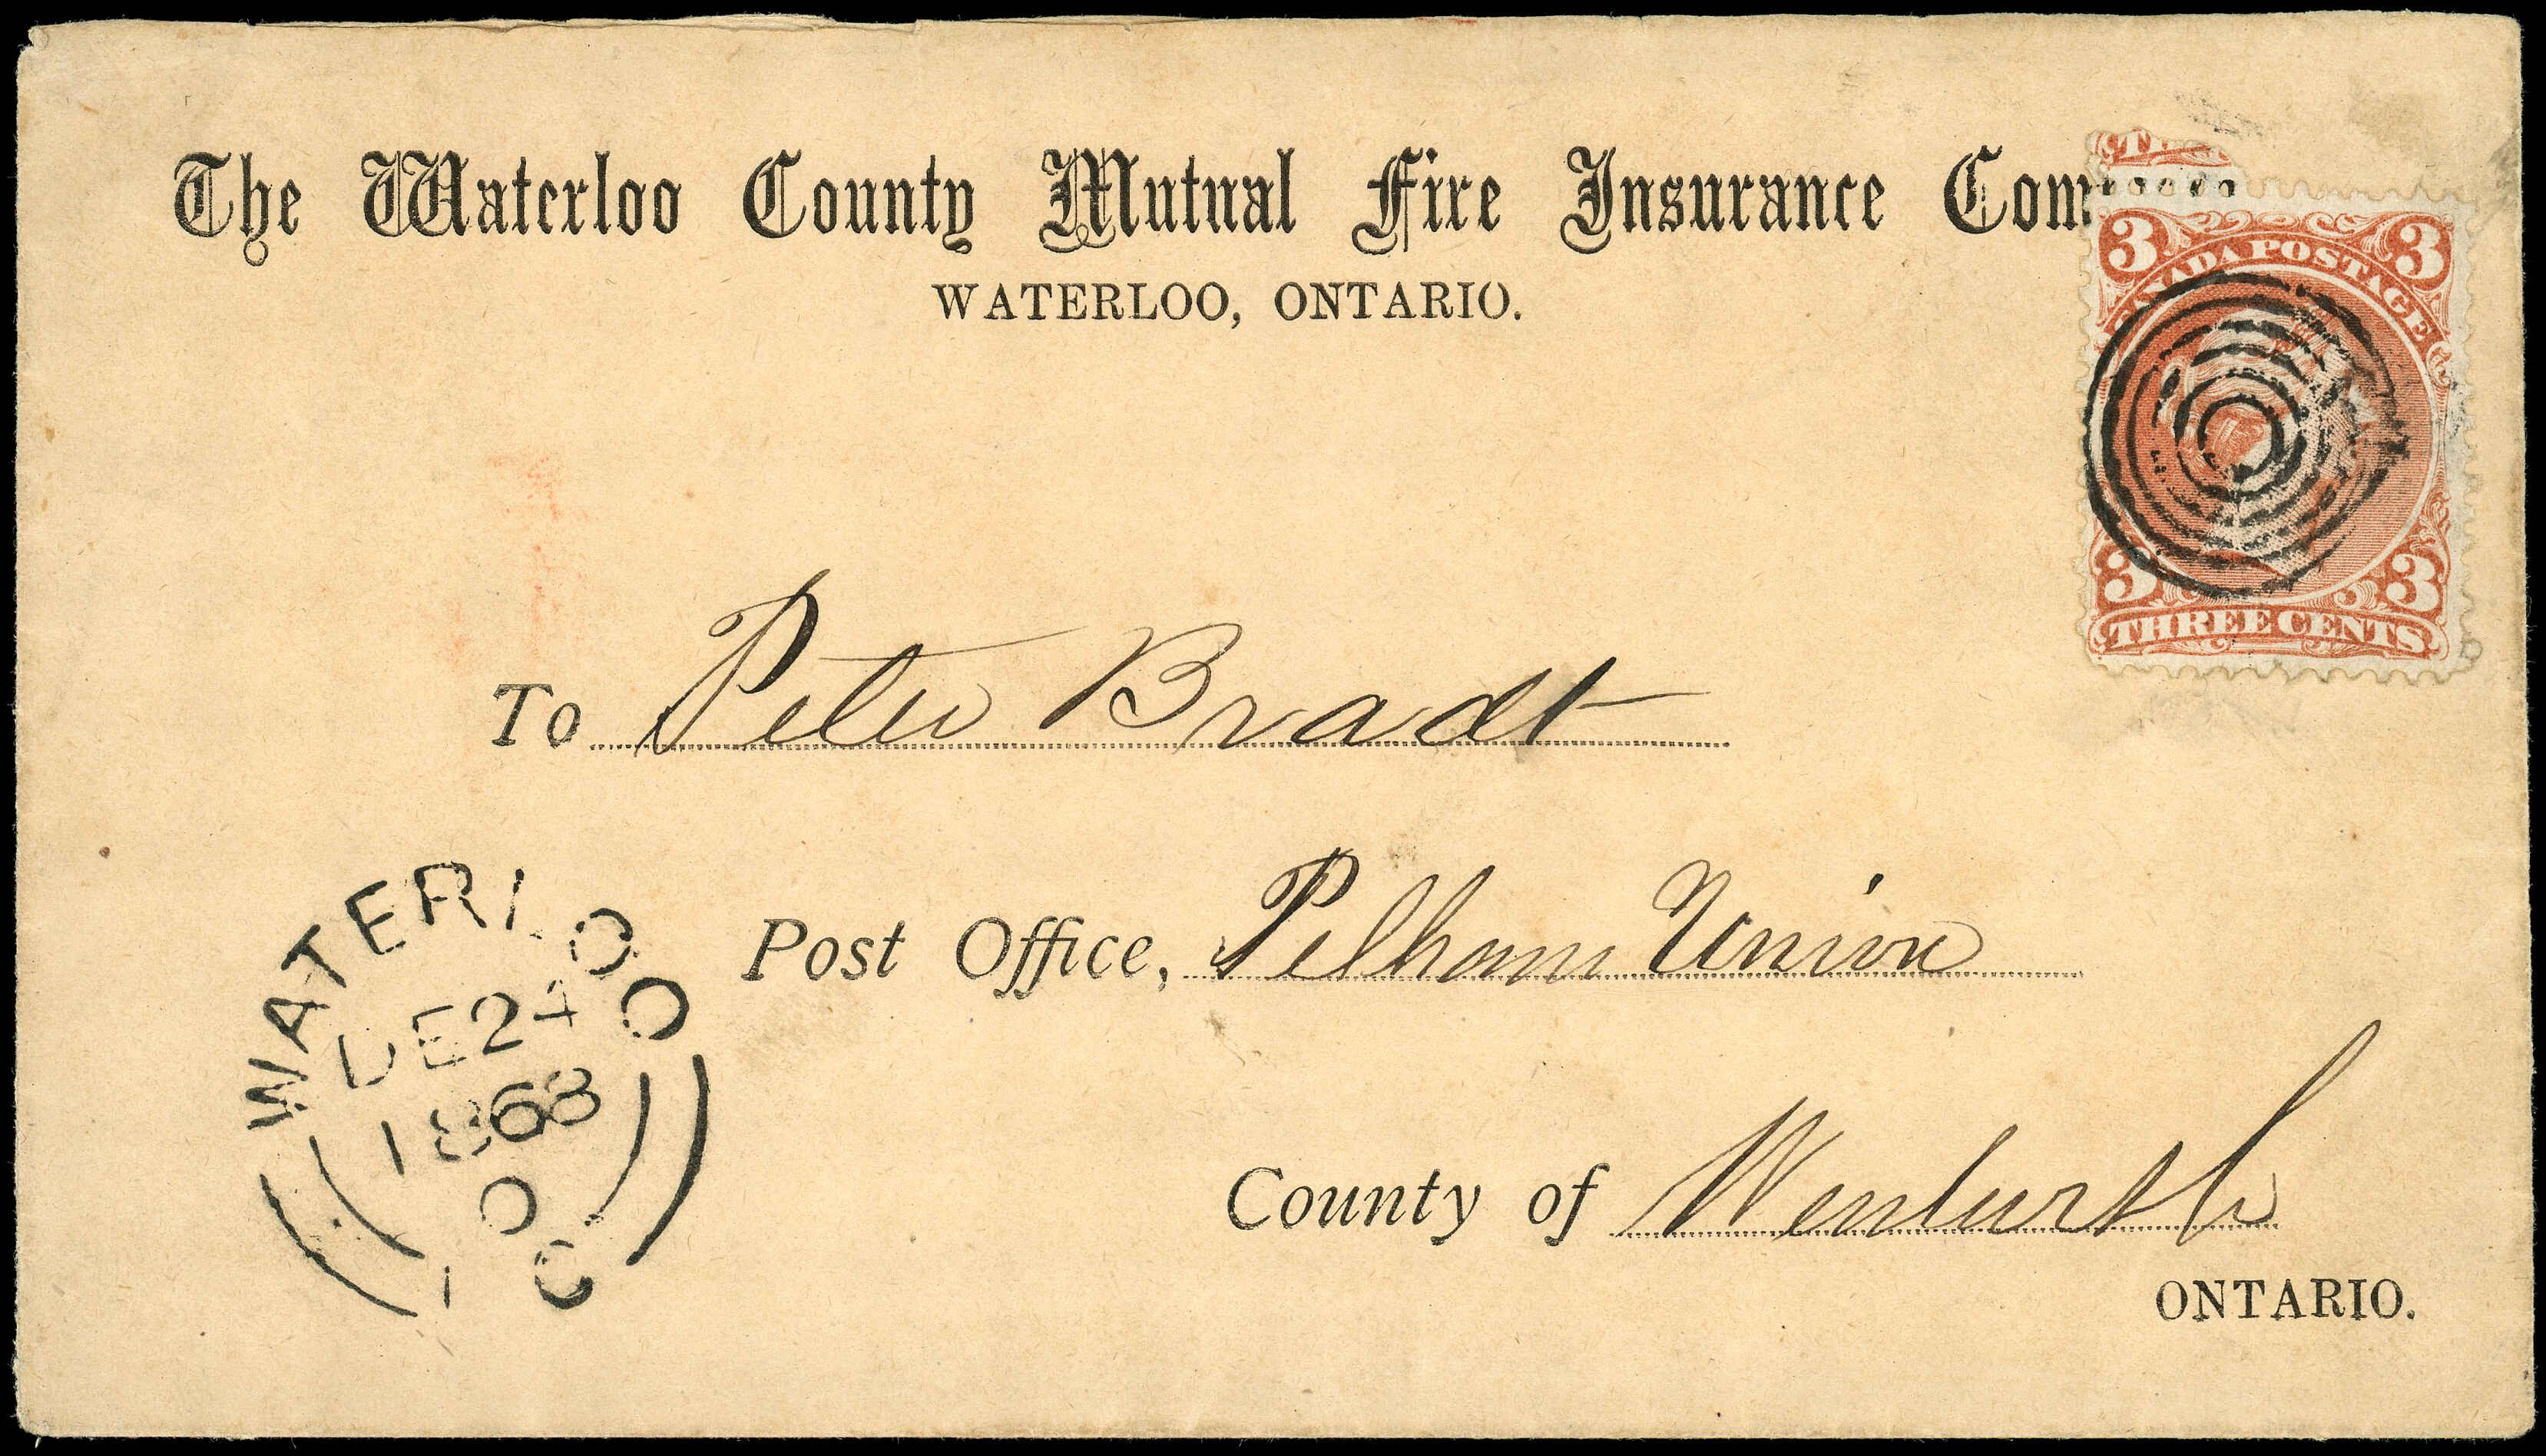 The Waterloo County Mutual Fire Insurance Com
WATERLOO, ONTARIO.
3 3
CANADA POSTAGE
3 3
THREE CENTS
To Peter Bradt
Post Office, Pelham Union
County of Wentworth
ONTARIO.
WATERLOO
DE 24
1868